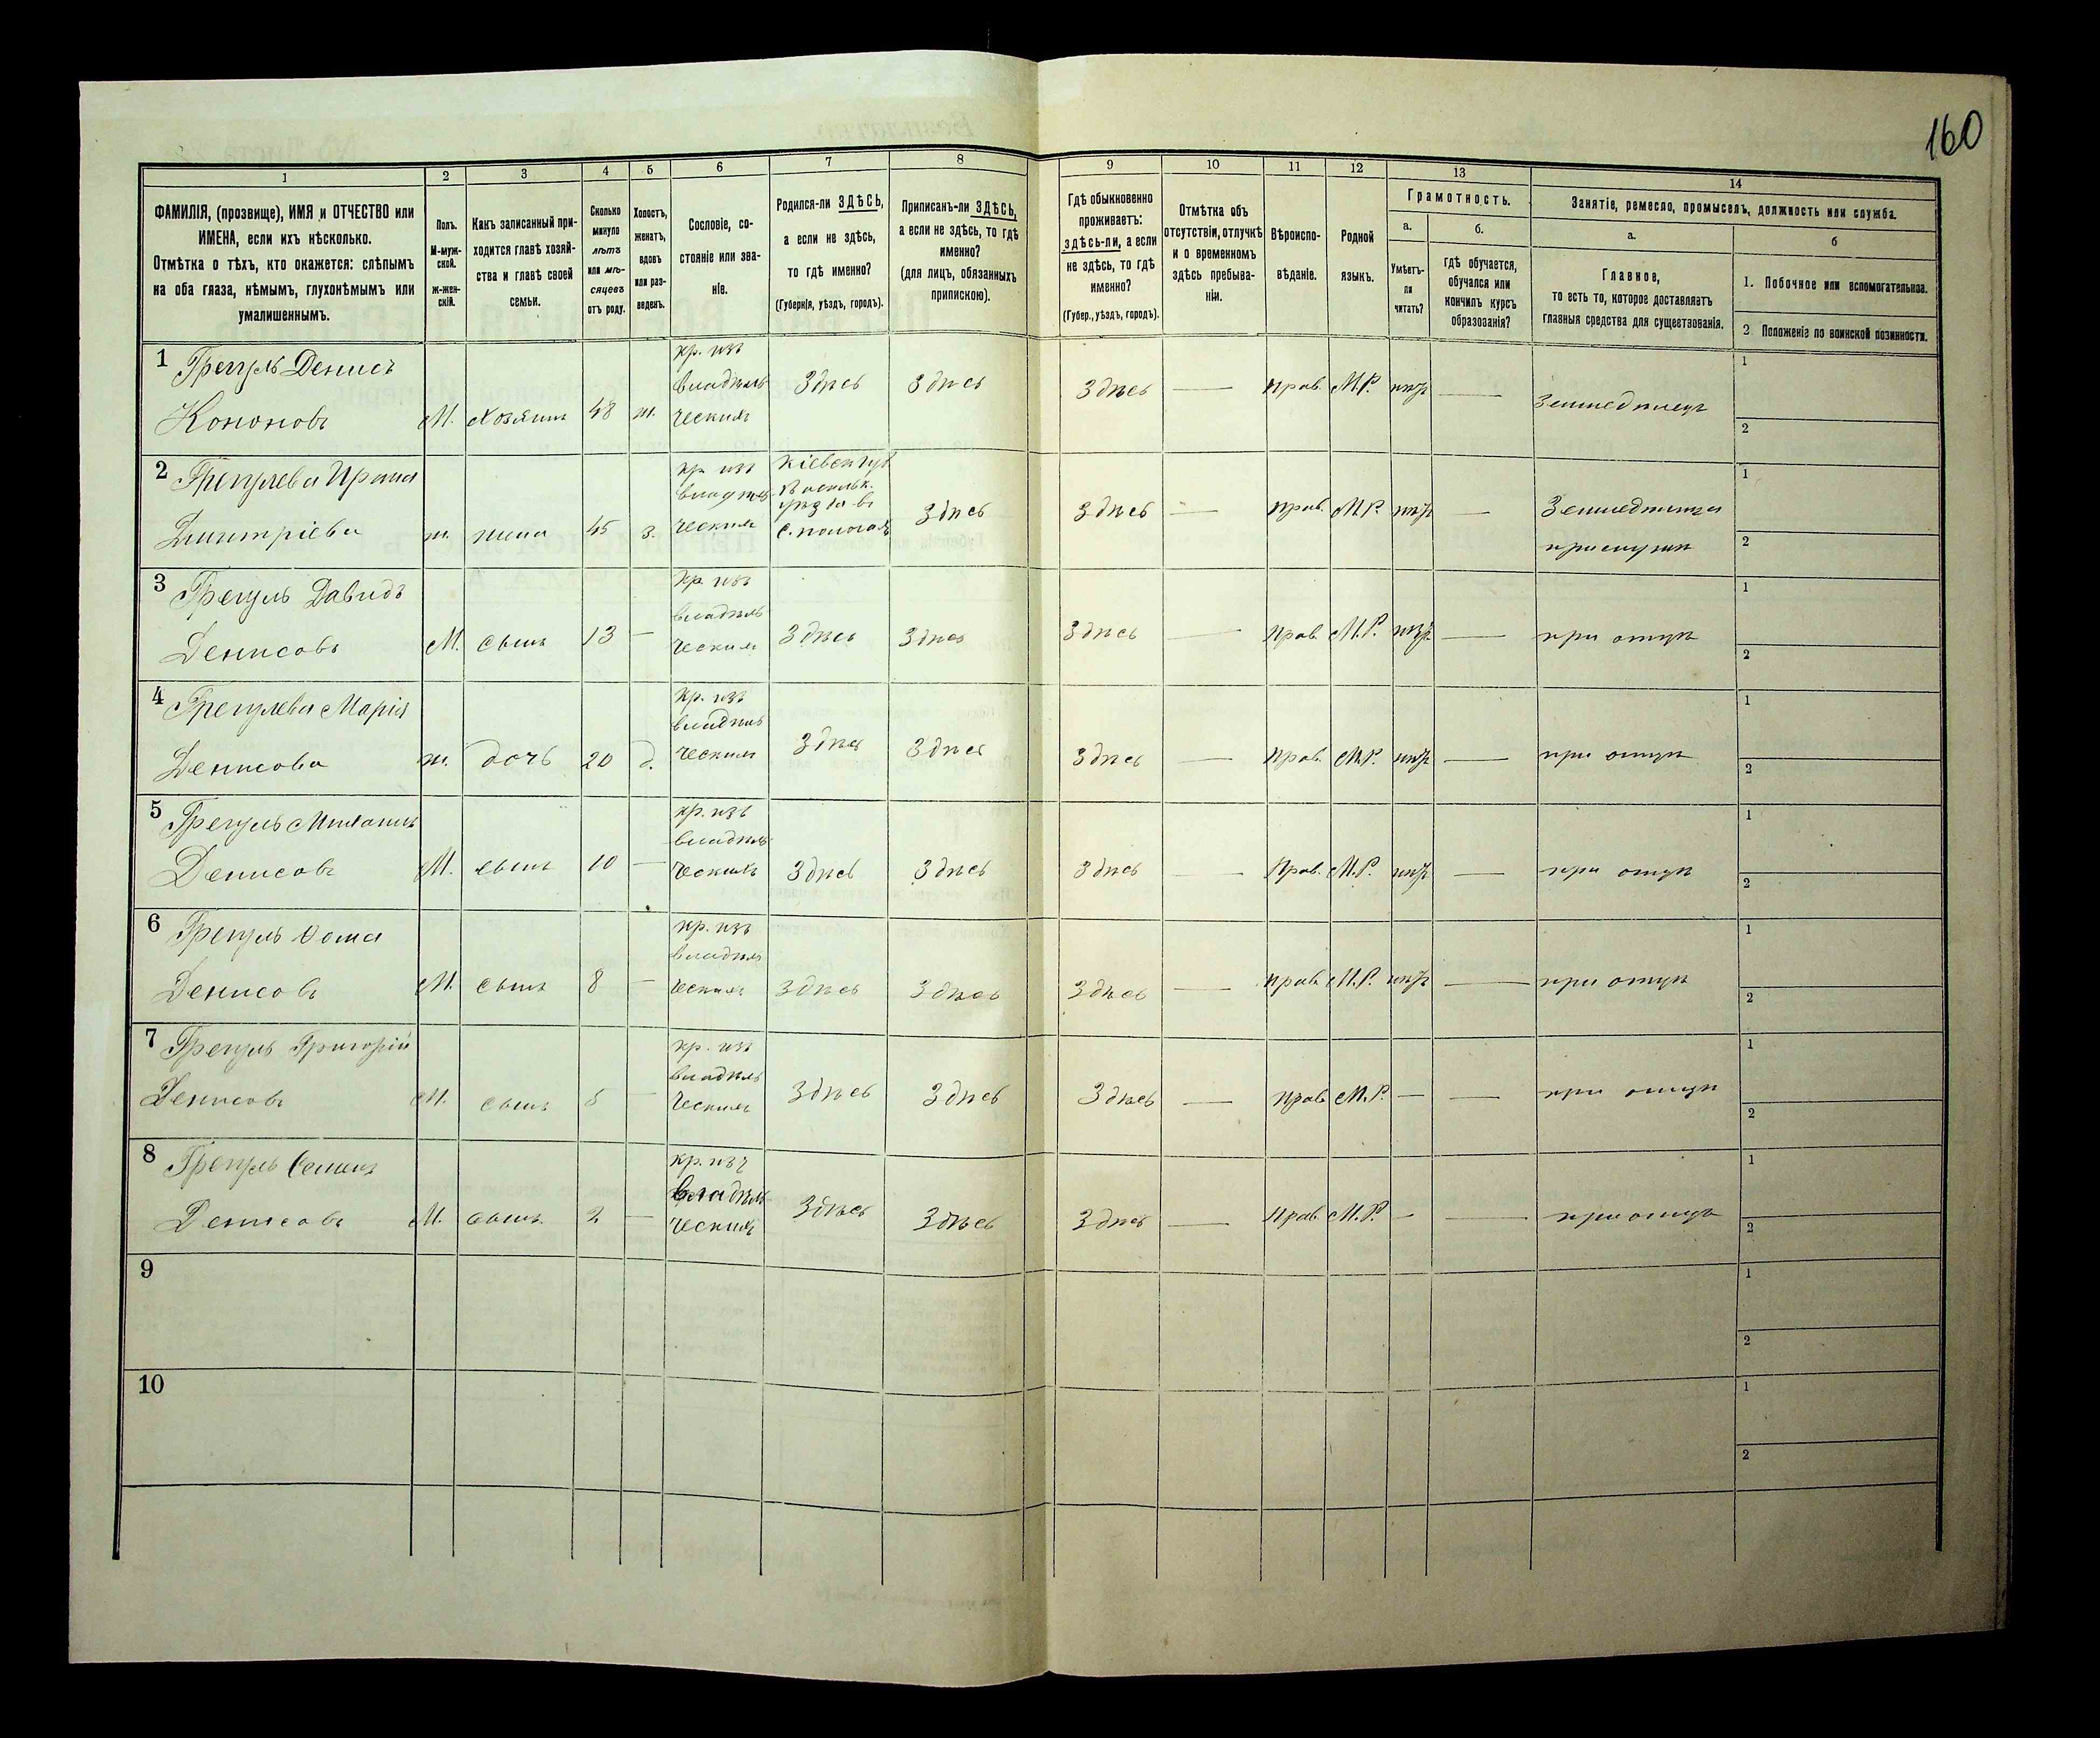 160
1 2 3 4 5 6 7 8 9 10 11 12 13 14
ФАМИЛІЯ, (прозвище), ИМЯ и ОТЧЕСТВО или
ИМЕНА, если ихъ нѣсколько.
Отмѣтка о тѣхъ, кто окажется: слѣпымъ
на оба глаза, нѣмымъ, глухонѣмымъ или
умалишеннымъ.
Полъ.
М-муж-
ской.
ж-жен-
скій.
Какъ записанный при-
ходится главѣ хозяй-
ства и главѣ своей
семьи.
Сколько
минуло
лѣтъ
или мѣ-
сяцевъ
отъ роду.
Холостъ,
женатъ,
вдовъ
или раз-
веденъ.
Сословіе, со-
стояніе или зва-
ніе.
Родился-ли ЗДѢСЬ,
а если не здѣсь,
то гдѣ именно?
(Губернія, уѣздъ, городъ).
Приписанъ-ли ЗДѢСЬ,
а если не здѣсь, то гдѣ
именно?
(для лицъ, обязанныхъ
припискою).
Гдѣ обыкновенно
проживаетъ:
здѣсь-ли, а если
не здѣсь, то гдѣ
именно?
(Губер., уѣздъ, городъ).
Отмѣтка объ
отсутствіи, отлучкѣ
и о временномъ
здѣсь пребыва-
ніи.
Вѣроиспо-
вѣданіе.
Родной
языкъ.
Грамотность.
а.
Умѣетъ-
ли
читать?
б.
гдѣ обучается,
обучался или
кончилъ курсъ
образованія?
Занятіе, ремесло, промыселъ, должность или служба.
а.
Главное,
то есть то, которое доставляетъ
главныя средства для существованія.
б
1. Побочное или вспомогательное.
2. Положеніе по воинской повинности.
1 Денисъ
Кононовъ М. хозяинъ 48 ж. кр. изъ владѣль ческихъ Здѣсь Здѣсь Здѣсь — Прав. М.Р. нѣтъ — Земледѣлецъ 1 2
2
Дмитріева ж. жена 45 з. кр. изъ владѣль ческихъ Кіевск. губ Васильк. уѣзда въ Здѣсь Здѣсь — Прав. М.Р. нѣтъ — Земледѣлица при мужѣ 1 2
3 Давидъ
Денисовъ М. сынъ 13 — кр. изъ владѣль ческихъ Здѣсь Здѣсь Здѣсь — Прав. М.Р. нѣтъ — при отцѣ 1 2
4 Марія
Денисова ж. дочь 20 д. кр. изъ владѣль ческихъ Здѣсь Здѣсь Здѣсь — Прав. М.Р. нѣтъ — при отцѣ 1 2
5
Денисовъ М. сынъ 10 — кр. изъ владѣль ческихъ Здѣсь Здѣсь Здѣсь — Прав. М.Р. нѣтъ — при отцѣ 1 2
6 Ѳома
Денисовъ М. сынъ 8 — кр. изъ владѣль ческихъ Здѣсь Здѣсь Здѣсь — Прав. М.Р. нѣтъ — при отцѣ 1 2
7 Григорій
Денисовъ М. сынъ 5 — кр. изъ владѣль ческихъ Здѣсь Здѣсь Здѣсь — Прав. М.Р. — — при отцѣ 1 2
8 Семенъ
Денисовъ М. сынъ 2 — кр. изъ владѣль ческихъ Здѣсь Здѣсь Здѣсь — Прав. М.Р. — — при отцѣ 1 2
9 1 2
10 1 2